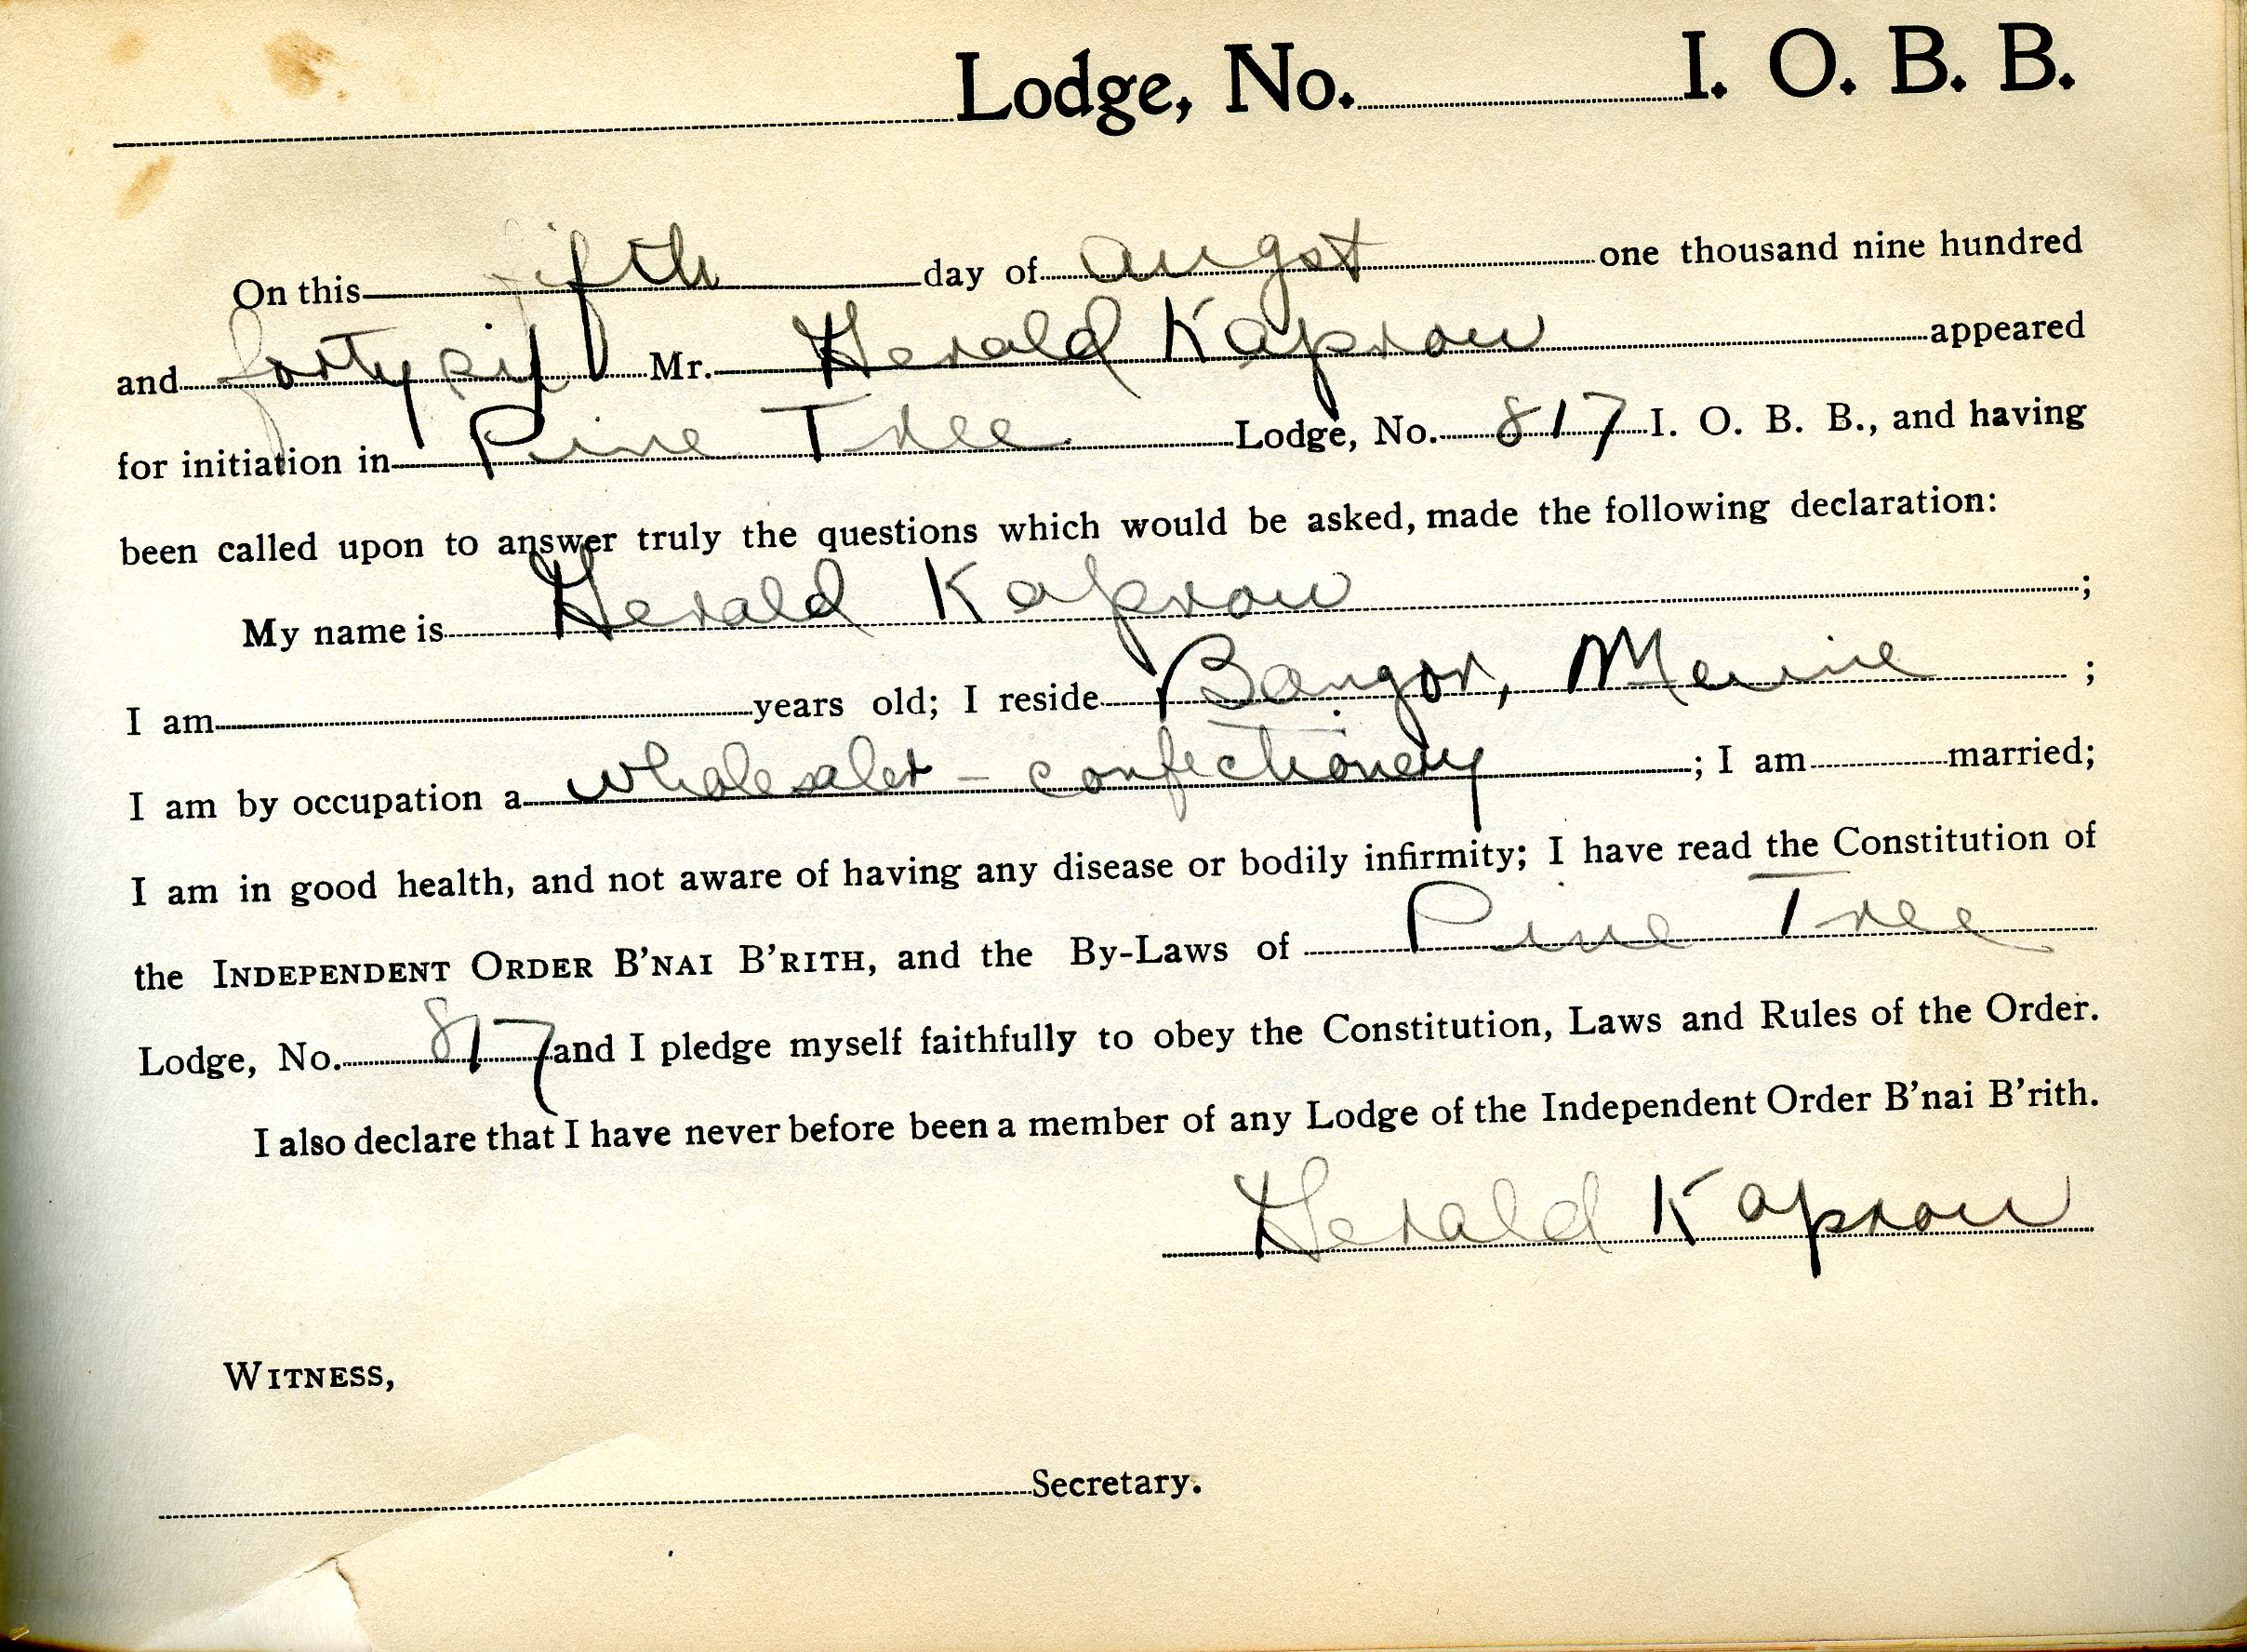 Lodge, No. I. O. B. B.
On this fifth day of Augst one thousand nine hundred
and forty six Mr. Herald Kaprow appeared
for initiation in Pine Tree Lodge, No. 817 I. O. B. B., and having
been called upon to answer truly the questions which would be asked, made the following declaration:
My name is Herald Kaprow ;
I am years old; I reside Bangor, Maine ;
I am by occupation a wholesaler - confectionery ; I am married;
I am in good health, and not aware of having any disease or bodily infirmity; I have read the Constitution of
the INDEPENDENT ORDER B'NAI B'RITH, and the By-Laws of Pine Tree
Lodge, No. 817 and I pledge myself faithfully to obey the Constitution, Laws and Rules of the Order.
I also declare that I have never before been a member of any Lodge of the Independent Order B'nai B'rith.
Herald Kaprow
WITNESS,
Secretary.